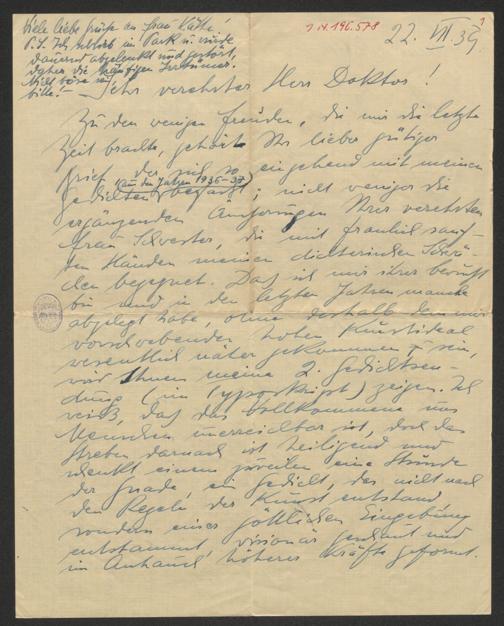 Viele liebe Grüße an Frau Käthe!
P.S. Ich schrieb im Park u. wurde
dauernd abgelenkt und gestört,
daher die häufigen Irrtümer.
Nicht böse sein
bitte! –
I N 196.578
22. VII 39.
Sehr verehrter Herr Doktor!
Zu den wenigen Freuden, die mir die letzte
Zeit brachte, gehörte Ihr lieber gütiger
Brief, der sich so eingehend mit meinen
Gedichten (aus den Jahren 1936-38) befasst; nicht weniger die
ergänzenden Äußerungen Ihrer verehrten
Frau Schwester, die mit fraulich sanf-
ten Händen meinen dichterischen
den begegnet. Daß ich mir ihrer bewußt
bin und in den letzten Jahren manche
abgelegt habe, ohne deshalb dem mir
vorschwebenden hohen Kunstideal
wesentlich näher gekommen zu sein,
wird Ihnen meine 2. Gedichtsen-
dung (im Typoskript) zeigen. Ich
weiß, daß das Vollkommene uns
Menschen unerreichbar ist, doch das
Streben darnach ist heiligend und
schenkt einem zuweilen eine Stunde
der Gnade, ein Gedicht, das nicht nach
den Regeln der Kunst entstand
sondern einer göttlichen Eingebung
entstammt, visionär geschaut und
im Anhauch höherer Kräfte geformt.